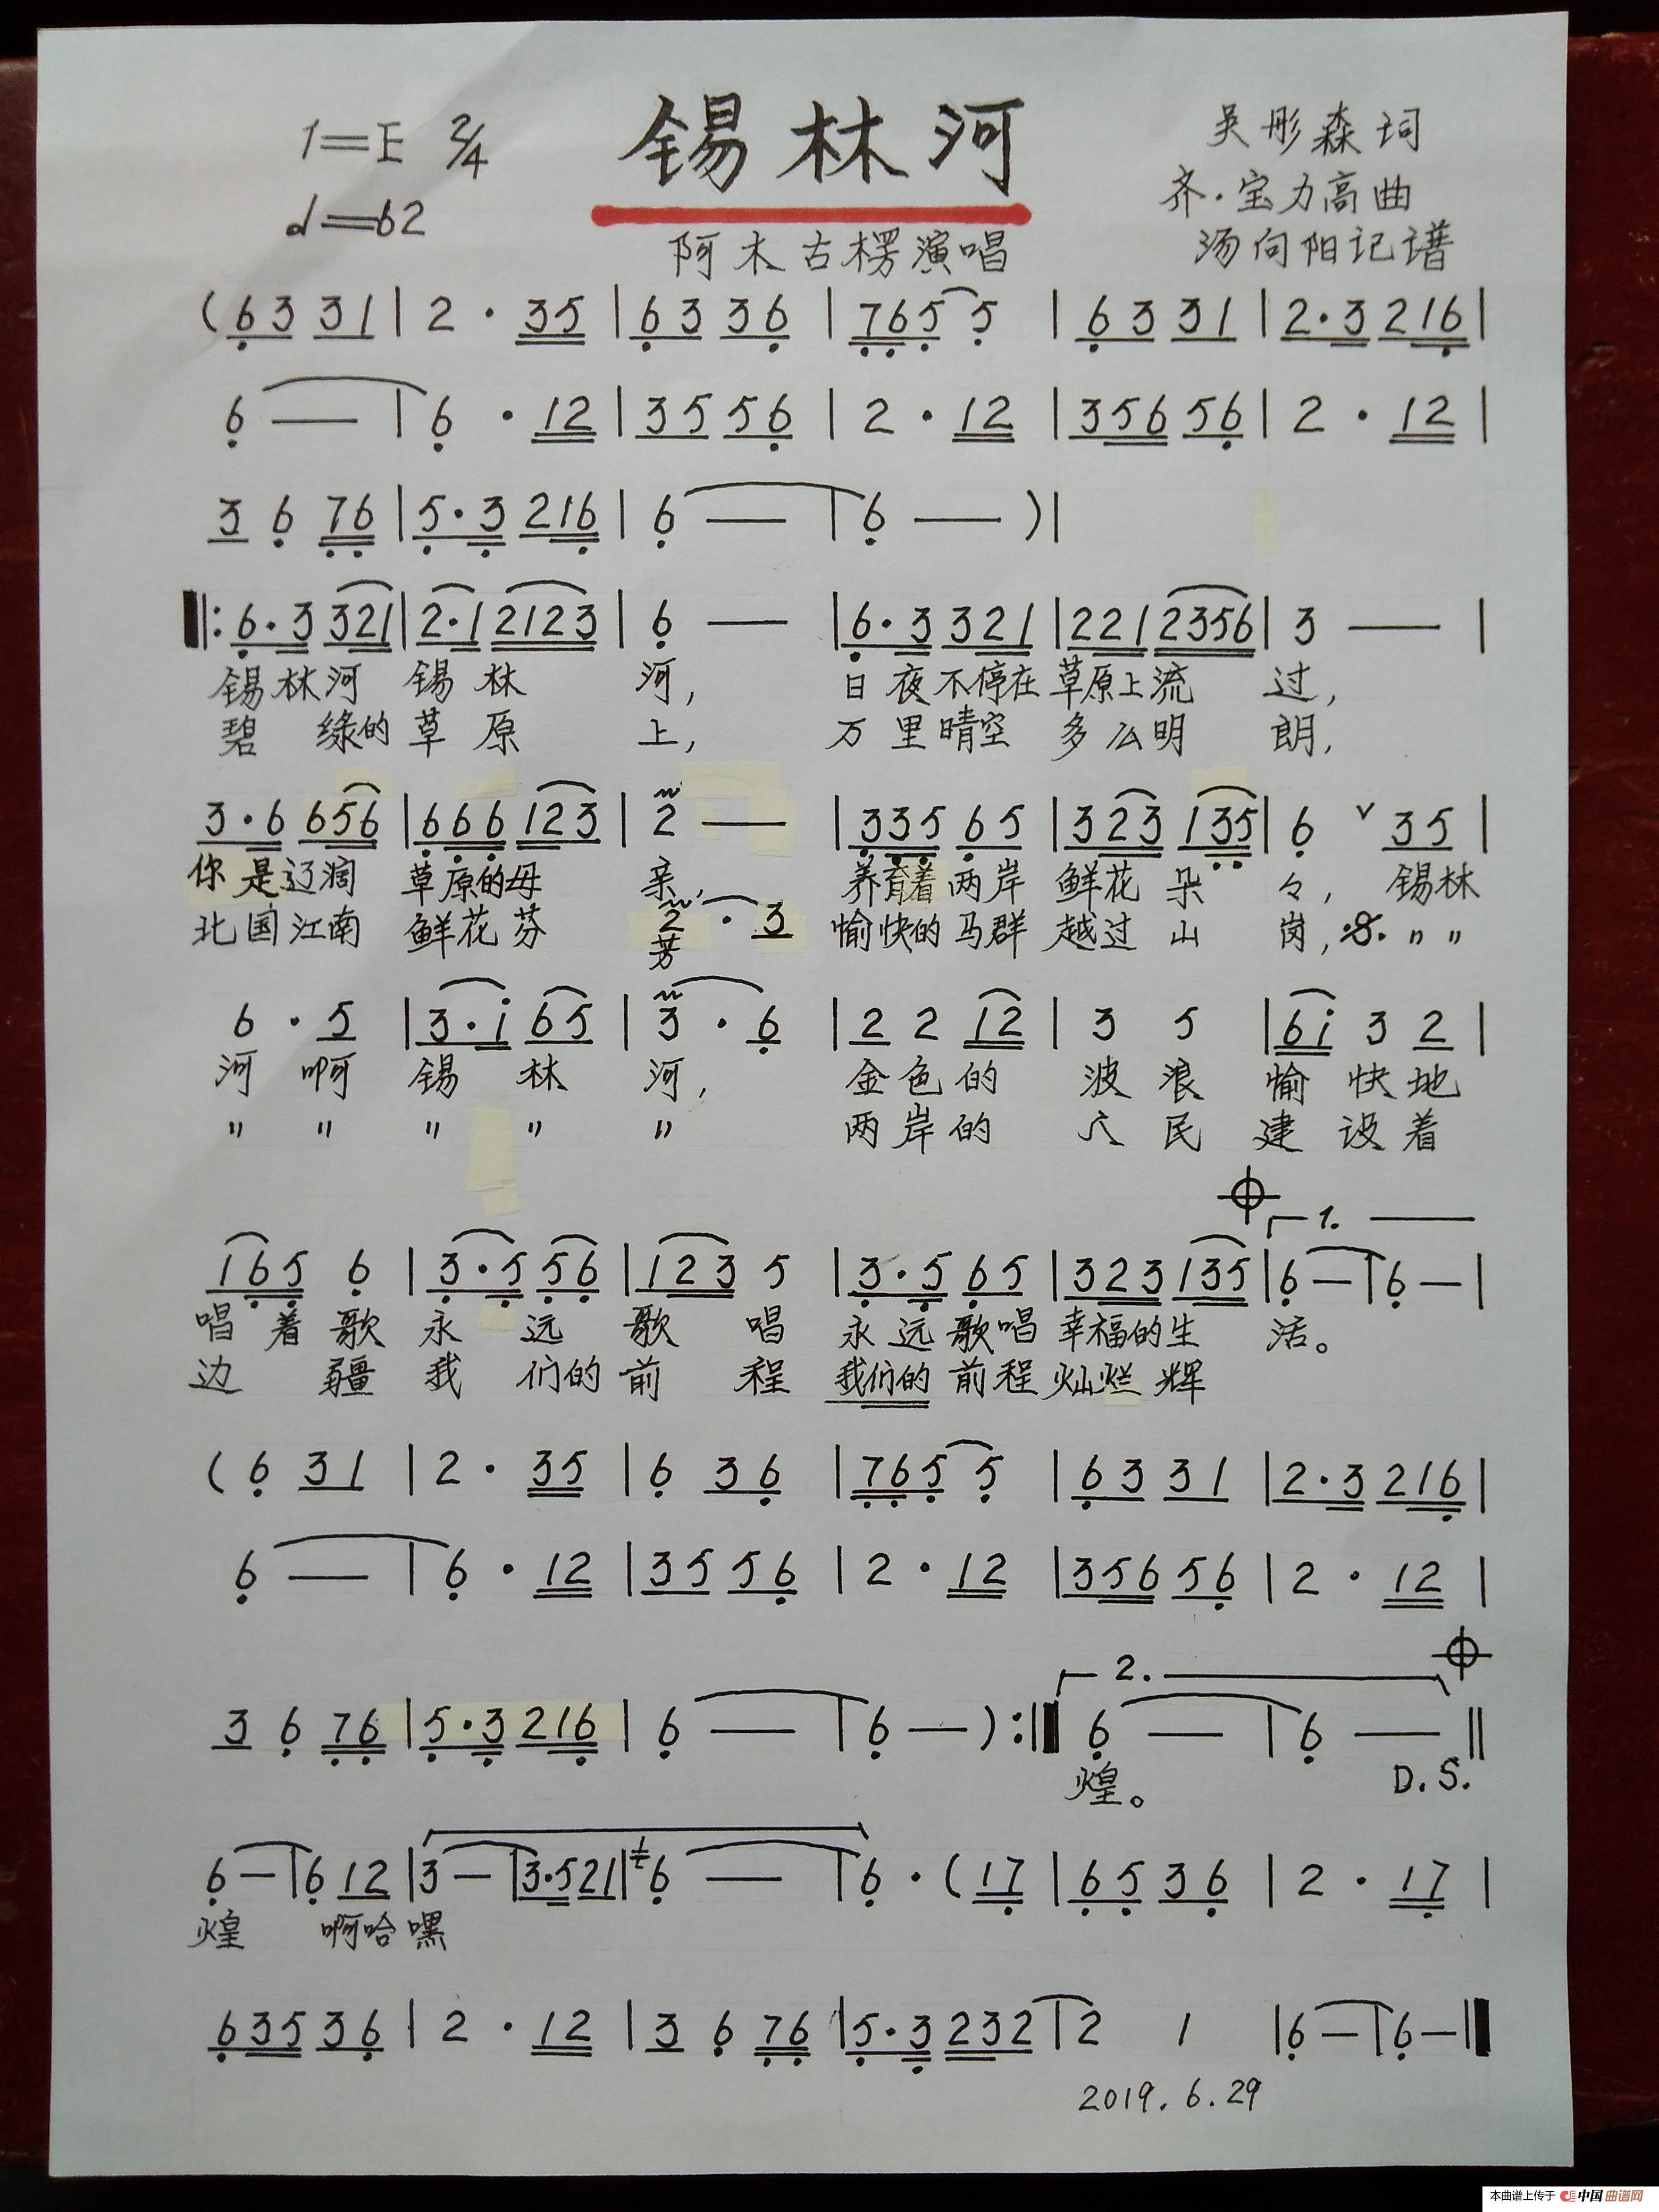 锡林河
1=E 2/4
♩=62
吴彤森词
齐·宝力高曲
汤向阳记谱
阿木古楞演唱
(63 31|2·35|63 36|765 5|63 31|2·3 216|
6—|6·12|35 56|2·12|356 56|2·12|
3 6 76|5·3 216|6—|6—)|
‖:6·3 321|2·1 2123|6—|6·3 321|221 2356|3—|
锡林河 锡林 河, 日夜不停在草原上流 过,
碧 绿的草 原 上, 万里晴空 多么明 朗,
3·6 656|666 123|2—|335 65|323 135|6 ∨ 35|
你是辽阔 草原的母 亲, 养育着两岸 鲜花 朵 々, 锡林
2·3
北国江南 鲜花芬 芳 愉快的马群 越过 山 岗, 𝄋 〃 〃
6·5|3·i 65|3·6|2 2 12|3 5|6i 3 2|
河 啊 锡 林 河, 金色的 波 浪 愉 快地
〃 〃 〃 〃 〃 两岸的 人 民 建 设着
1.
165 6|3·5 56|123 5|3·5 65|323 135|6—|6—|
唱 着歌 永 远 歌 唱 永远歌唱 幸福的生 活。
边 疆 我 们的 前 程 我们的 前程 灿烂 辉
(6 31|2·35|6 36|765 5|63 31|2·3 216|
6—|6·12|35 56|2·12|356 56|2·12|
2.
3 6 76|5·3 216|6—|6—):‖6—|6—‖
煌。 D.S.
6—|6 12|3—|3·5 21|6—|6·(17|65 36|2·17|
煌 啊哈嘿
635 36|2·12|3 6 76|5·3 232|2 1|6—|6—‖
2019.6.29
本曲谱上传于 中国曲谱网